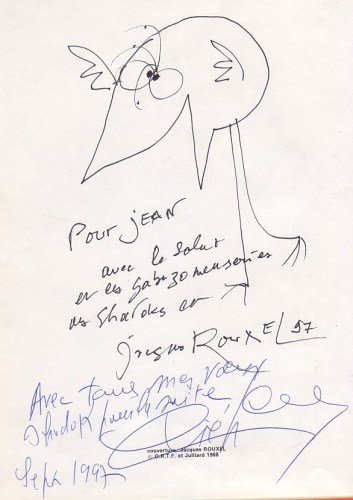 Pour JEAN
avec le salut
et les gabuzomeuseries
des Shadoks
Jacques RouxEL 97
Avec tous mes vœux
Shadok
Sept 1997
couverture : Jacques ROUXEL
© O.R.T.F. et Julliard 1968